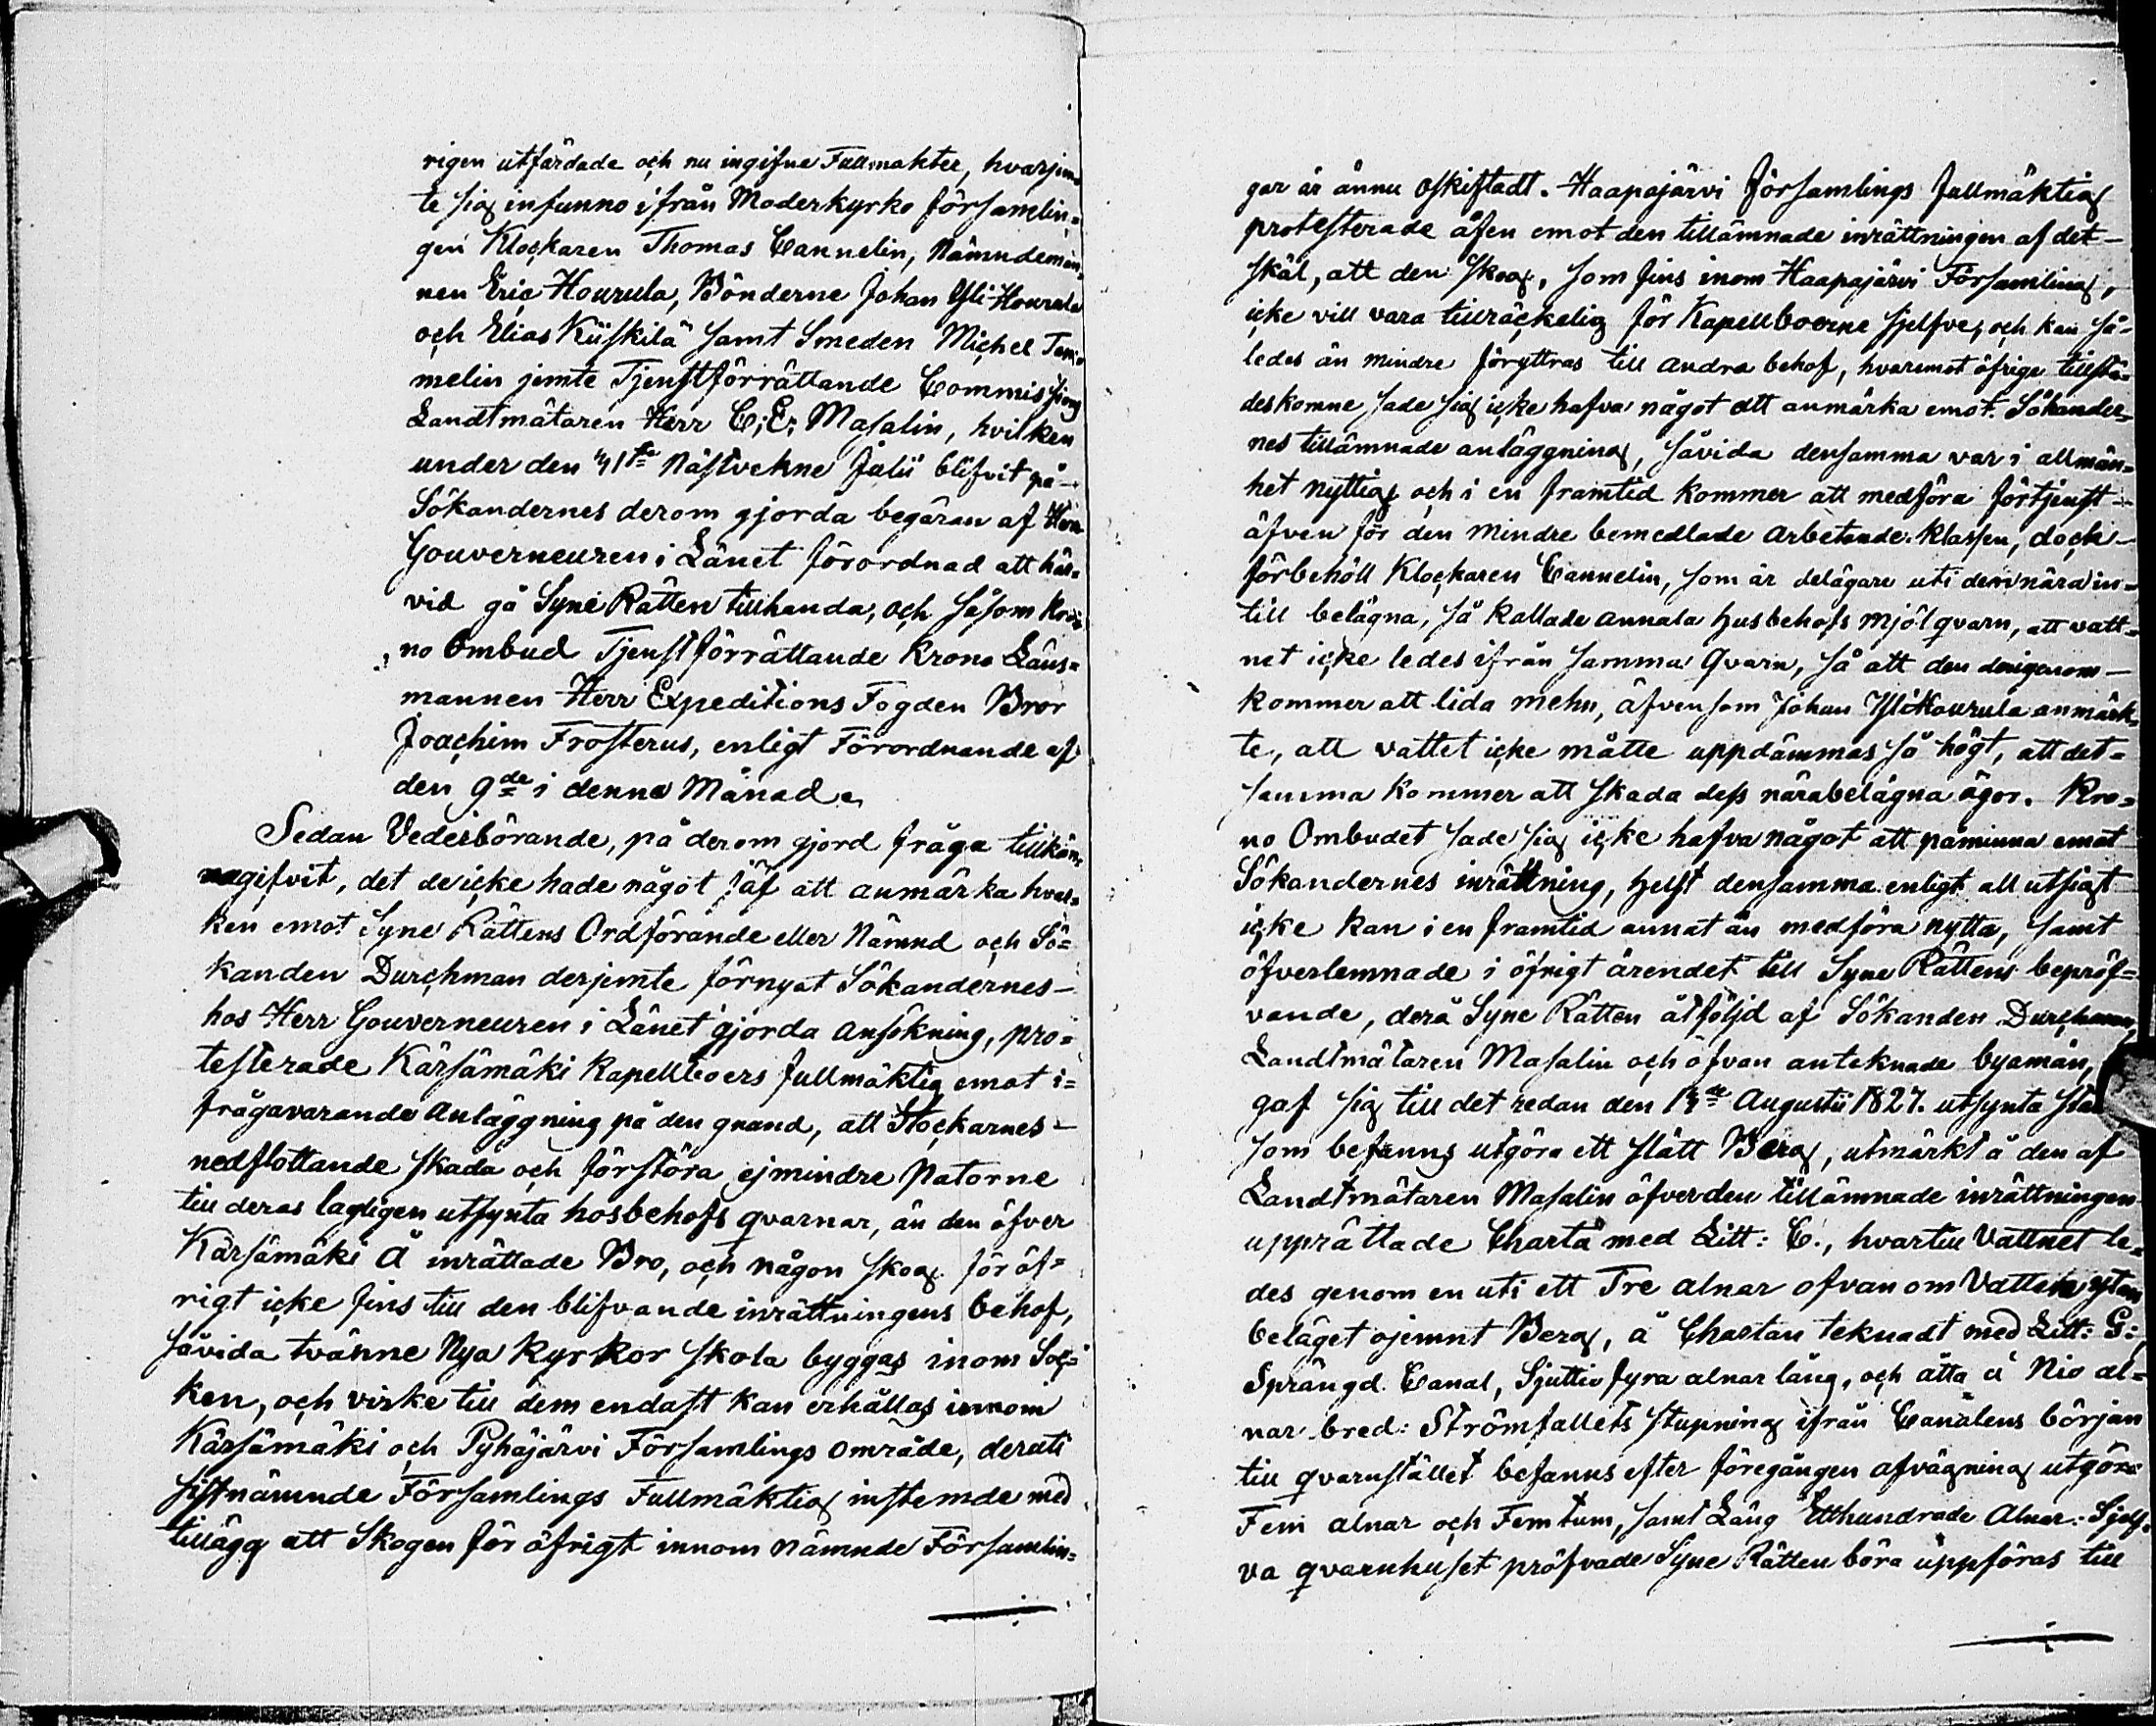 rigen utfärdade och nu ingifne Fullmakter, hvarjem=
te sig infunno ifrån Moderkyrko församlin=
gen Klockaren Thomas Cannelin, Nämndemän=
nen Eric Hourula, Bönderne Johan Yli-Hourula
och Elias Kiiskilä samt Smeden Michel Tem=
melin jemte Tjenstförrättande Commissions
Landtmätaren Herr C; E; Masalin, hvilken
under den näftvekne Julii blifvit på
Sökandernes derom gjorda begäran af Herr
Gouverneuren i Länet förordnad att här=
vid gå Syne Rätten tillhanda, och såsom Kro=
no Ombud Tjenstförrättande Krono Läns=
mannen Herr Expeditions Fogden Bror
Joachim Frosterus, enligt Förordnande af
den 9de i denna Månad.
Sedan Vederbörande, på derom gjord fråga tillkän=
nagifvit, det de icke hade något jäf att anmärka hvar=
ken emot Syne Rättens Ordförande eller Nämnd och Sö=
kanden Durchman derjemte förnyat Sökandernes
hos Herr Gouverneuren i Länet gjorda ansökning, pro=
testerade Kärsämäki Kapellboers fullmäktig emot i=
frågavarande Anläggning på den grund, att Stockarnes
nedflottande skada och förstöra ej mindre Patorne
till deras lagligen utsynta hosbehofs qvarnar, än den öfver
Kärsämäki Å inrättade Bro, och någon skog för öf=
rigt icke fins till den blifvande inrättningens behof,
såvida tvänne Nya Kyrkor skola byggas inom Soc=
ken, och virke till dem endast kan erhållas innom
Kärsämäki och Pyhäjärvi Församlings område, deruti
sistnämnde Församlings Fullmäktig instemde med
tillägg att Skogen för öfrigt innom nämnde Församlin=
gar är ännu oskiftadt. Haapajärvi Församlings fullmäktig
protesterade äfen emot den tillämnade inrättningen af det
skäl, att den skog, som fins inom Haapajärvi Församling,
icke vill vara tillräckelig för Kapellboerne sjelfve, och kan så=
ledes än mindre föryttras till andra behof, hvaremot öfrige tillstä=
deskomne sade sig icke hafva något att anmärka emot Sökander=
nes tillämnade anläggning, såvida densamma var i allmän=
het nyttig och i en framtid kommer att medföra förtjenst
äfven för den mindre bemedlade Arbetande klassen, dock
förbehöll Klockaren Cannelin, som är delägare uti den nära in=
till belägna, så kallade Annala husbehofs mjölqvarn, att vatt=
net icke ledes ifrån samma Qvarn, så att den derigenom
kommer att lida mehn, äfvensom Johan Ylikourula anmärk=
te, att vattet icke måtte uppdämmas så högt, att det=
samma kommer att skada dess närabelägna ägor. Kro=
no Ombudet sade sig icke hafva något att påminna emot
Sökandernes inrättning, helst densamma enligt all utsigt
icke kan i en framtid annat än medföra nytta, samt
öfverlemnade i öfrigt ärendet till Syne Rättens bepröf=
vande, derå Syne Rätten åtföljd af Sökanden Durchman,
Landtmätaren Masalin och öfvan anteknade byamän,
gaf sig till det redan den Augustii 1827. utsynta
som befanns utgöra ett slätt Berg, utmärkt å den af
Landtmätaren Masalin öfver den tillämnade inrättningen
upprättade Charta med Litt: C., hvartill Vattnet le=
des genom en uti ett Tre alnar ofvan om Vattenytan
beläget ojemnt Berg, å Chartan teknadt med Litt: G:
Sprängd Canal, Sjuttio fyra alnar lång, och åtta á Nio al=
nar bred: Strömfallets stupning ifrån Canalens början
till qvarnstället befanns efter föregången afvägning utgöra
Fem alnar och Fem tum, samt Lång Etthundrade Alnar. Sjelf=
va qvarnhuset pröfvade Syne Rätten böra uppföras till